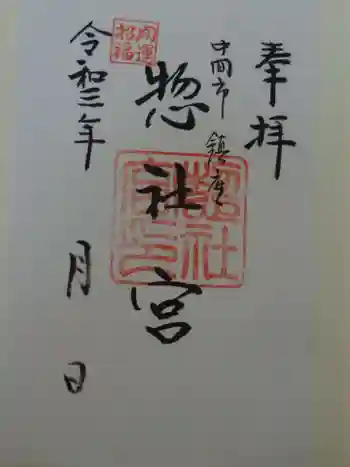 奉拝
中間市 鎮座
惣社宮
惣社宮印
開運招福
令和三年 月 日